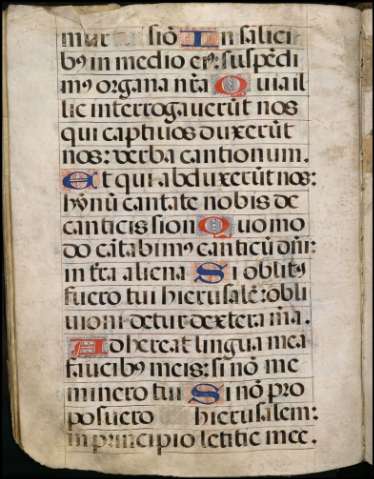 mur siō In salici
bꝰ in medio eiꝰ: suspēdi
mꝰ organa nr̄a Quia il
lic interrogauerūt nos
qui captiuos duxerūt
nos: verba cantionum.
Et qui abduxerūt nos:
hỹnū cantate nobis de
canticis sion Quomo
do cātabimꝰ canticū dn̄i:
in tr̄a aliena Si oblitꝰ
fuero tui hierusalē: obli
uioni detur dextera m̄a.
Adhereat lingua mea
faucibꝰ meis: si nō me
minero tui Si nō pro
posuero hierusalem:
in principio letitie mee.